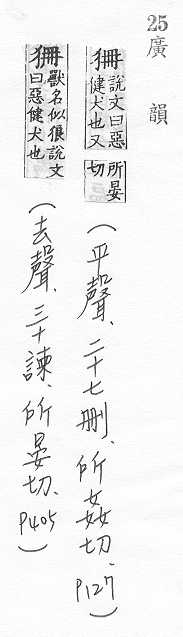 25
廣韻
狦說文曰惡健犬也又所晏切
(平聲、二十七刪、所姦切、P127)
狦獸名似狼說文曰惡健犬也
(去聲、三十諫、所晏切、P405)